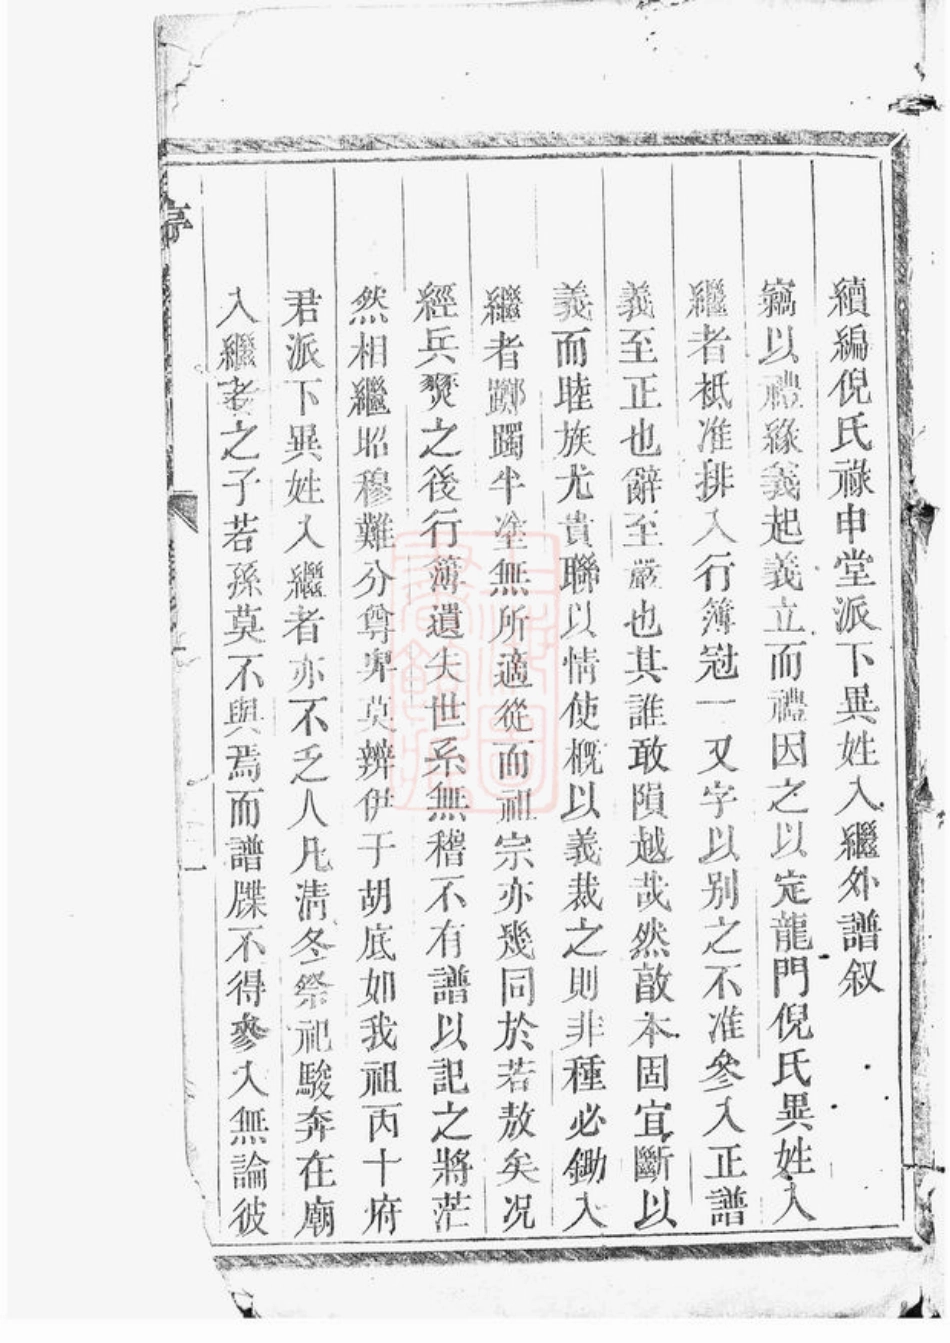 續編倪氏祿申堂派下異姓入繼外譜叙
竊以禮緣義起義立而禮因之以定龍門倪氏異姓入
繼者祗准排入行簿冠一又字以别之不准參入正譜
義至正也辭至嚴也其誰敢隕越哉然敵本固宜斷以
義而睦族尤貴聯以情使概以義裁之則非種必鋤入
繼者躑躅半塗無所適從而祖宗亦幾同於若敖矣况
經兵燹之後行簿遺失世系無稽不有譜以記之將茫
然相繼昭穆難分尊卑莫辨伊于胡底如我祖丙十府
君派下異姓入繼者亦不乏人凡清冬祭祀駿奔在廟
入繼者之子若孫莫不與焉而譜牒不得參入無論彼